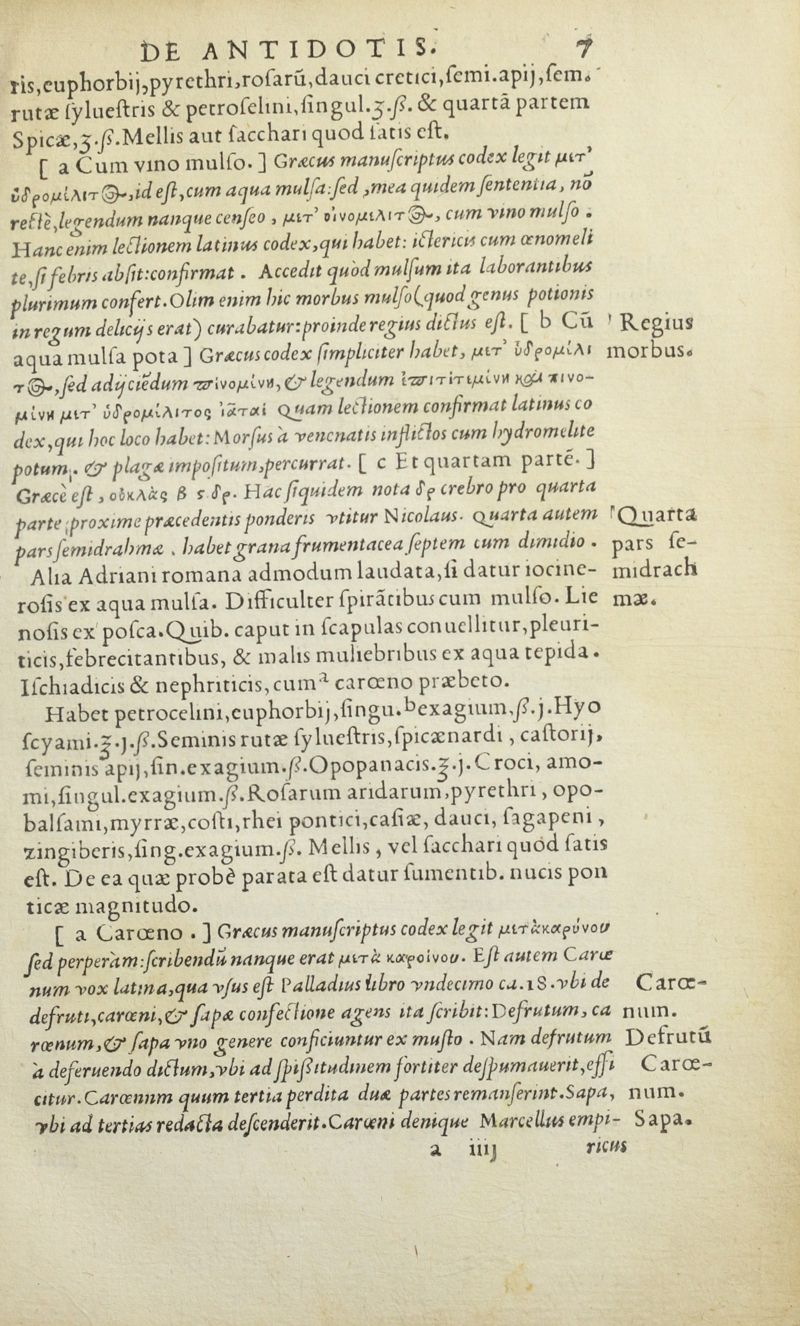 DE ANTIDOTIS. 7
ris,euphorbij,pyrethri,roſarū,dauci cretici,ſemi.apij,ſem.
rutæ ſylueſtris & petroſelini,ſingul.ʒ.ß. & quartā partem
Spicæ,ʒ.ß.Mellis aut ſacchari quod ſatis eſt.
[ a Cum vino mulſo. ] Græcus manuſcriptus codex legit μετ’
ὑδρομέλιτος,id eſt,cum aqua mulſa:ſed ,mea quidem ſententia, nō
rectè,legendum nanque cenſeo , μετ’ οἰνομέλιτος, cum vino mulſo .
Hanc enim lectionem latinus codex,qui habet: ictericis cum œnomeli
te,ſi febris abſit:confirmat . Accedit quòd mulſum ita laborantibus
plurimum confert.Olim enim hic morbus mulſo(quod genus potionis
in regum delicijs erat) curabatur:proinde regius dictus eſt. [ b Cū
Regius
aqua mulſa pota ] Græcus codex ſimpliciter habet, μετ’ ὑδρομέλι
morbus.
τος,ſed adijciēdum πινομένη,& legendum ἐπιτιτεμένη καὶ πινο-
μένη μετ’ ὑδρομέλιτος ἰᾶται Quam lectionem confirmat latinus co
dex,qui hoc loco habet:Morſus à venenatis inflictos cum hydromelite
potum, & plagæ impoſitum,percurrat. [ c Et quartam partē. ]
Græcè eſt , οὐκλὰς β ς δρ. Hac ſiquidem nota δρ crebro pro quarta
parte proxime præcedentis ponderis vtitur Nicolaus. Quarta autem
Quarta
pars ſemidrahmæ , habet grana frumentacea ſeptem cum dimidio .
pars ſe-
Alia Adriani romana admodum laudata,ſi datur iocine-
midrach
roſis ex aqua mulſa. Difficulter ſpirātibus cum mulſo. Lie
mæ.
noſis ex poſca.Quib. caput in ſcapulas conuellitur,pleuri-
ticis,febrecitantibus, & malis muliebribus ex aqua tepida.
Iſchiadicis & nephriticis,cum a carœno præbeto.
Habet petrocelini,euphorbij,ſingu. b exagium.ß.j.Hyo
ſcyami.ʒ.j.ß.Seminis rutæ ſylueſtris,ſpicænardi , caſtorij,
ſeminis apij,ſin.exagium.ß.Opopanacis.ʒ.j.Croci, amo-
mi,ſingul.exagium.ß.Roſarum aridarum,pyrethri, opo-
balſami,myrræ,coſti,rhei pontici,caſiæ, dauci, ſagapeni ,
zingiberis,ſing.exagium.ß. Mellis , vel ſacchari quòd ſatis
eſt. De ea quæ probè parata eſt datur ſumentib. nucis pon
ticæ magnitudo.
[ a Carœno . ] Græcus manuſcriptus codex legit μετὰκαρύνου
ſed perperàm:ſcribendū nanque erat μετὰ καροίνου. Eſt autem Carœ
num vox latina,qua vſus eſt Palladius libro vndecimo ca.18.vbi de
Carœ-
defruti,carœni,& ſapæ confectione agens ita ſcribit:Defrutum, ca
num.
rœnum,& ſapa vno genere conficiuntur ex muſto . Nam defrutum
Defrutū
à deferuendo dictum,vbi ad ſpißitudinem fortiter deſpumauerit,effi
Carœ-
citur.Carœnum quum tertia perdita duæ partes remanſerint.Sapa,
num.
vbi ad tertias redacta deſcenderit.Carœni denique Marcellus empi-
Sapa.
a iiij ricus